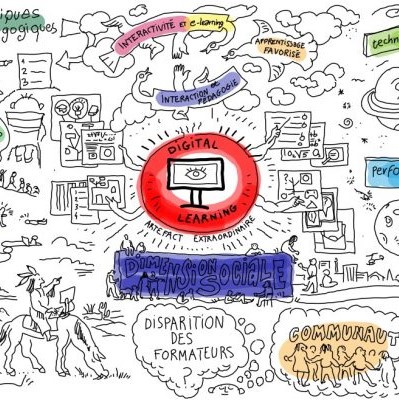 iques
agogiques
INTERACTIVITÉ ET e-learning
APPRENTISSAGE
FAVORISÉ
techn
1
2
3
INTERACTION DE
PÉDAGOGIE
DIGITAL
LEARNING
perfo
ARTEFACT EXTRAORDINAIRE
DIMENSION SOCIALE
DISPARITION
DES
FORMATEURS
?
COMMUNAUT